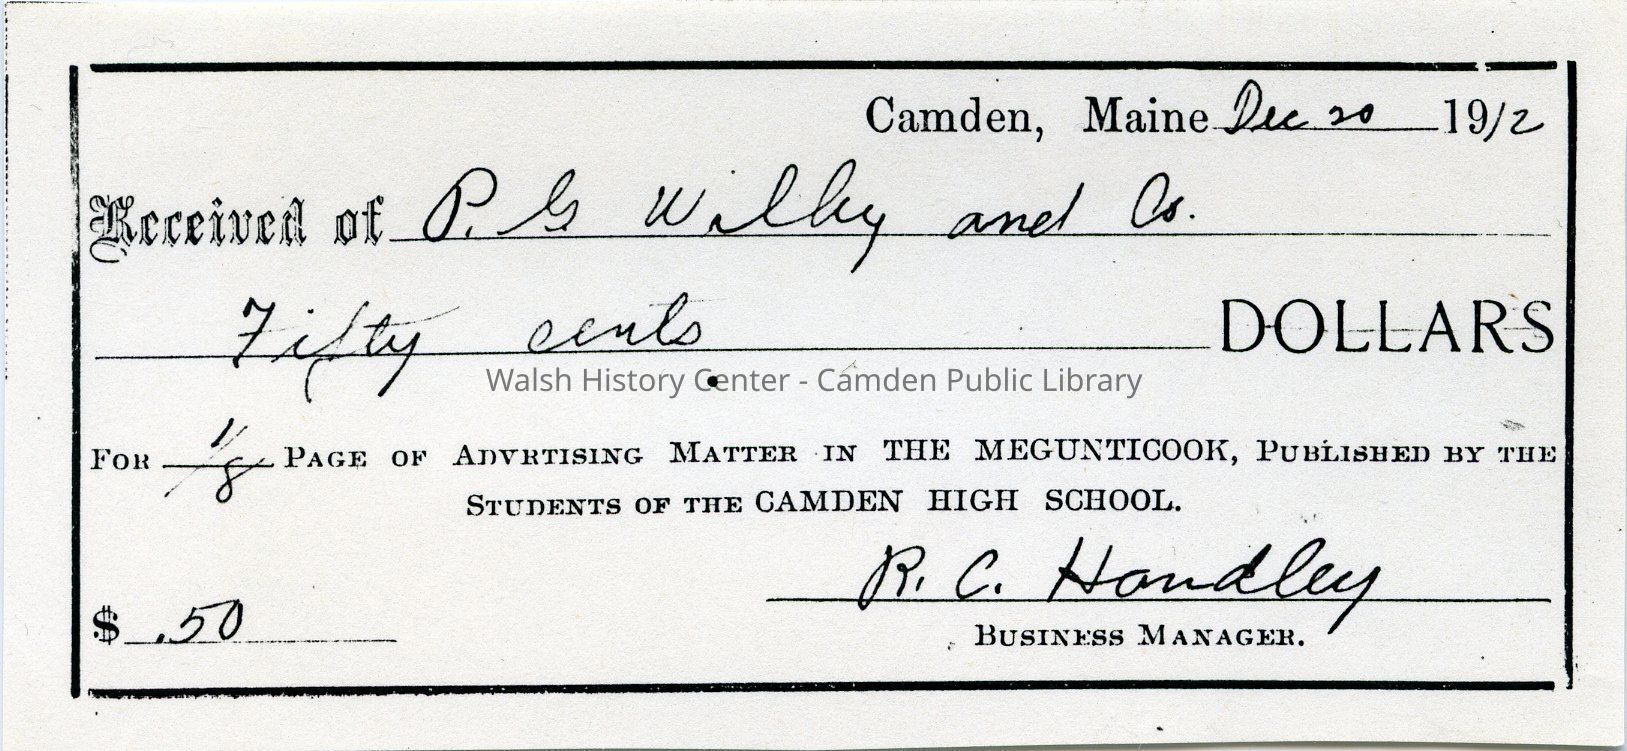 Camden, Maine Dec 20 1912
Received of P. G Wilby and Co.
Fifty cents DOLLARS
Walsh History Center - Camden Public Library
FOR 1/8 PAGE OF ADVRTISING MATTER IN THE MEGUNTICOOK, PUBLISHED BY THE
STUDENTS OF THE CAMDEN HIGH SCHOOL.
R. C. Handley
$ .50
BUSINESS MANAGER.